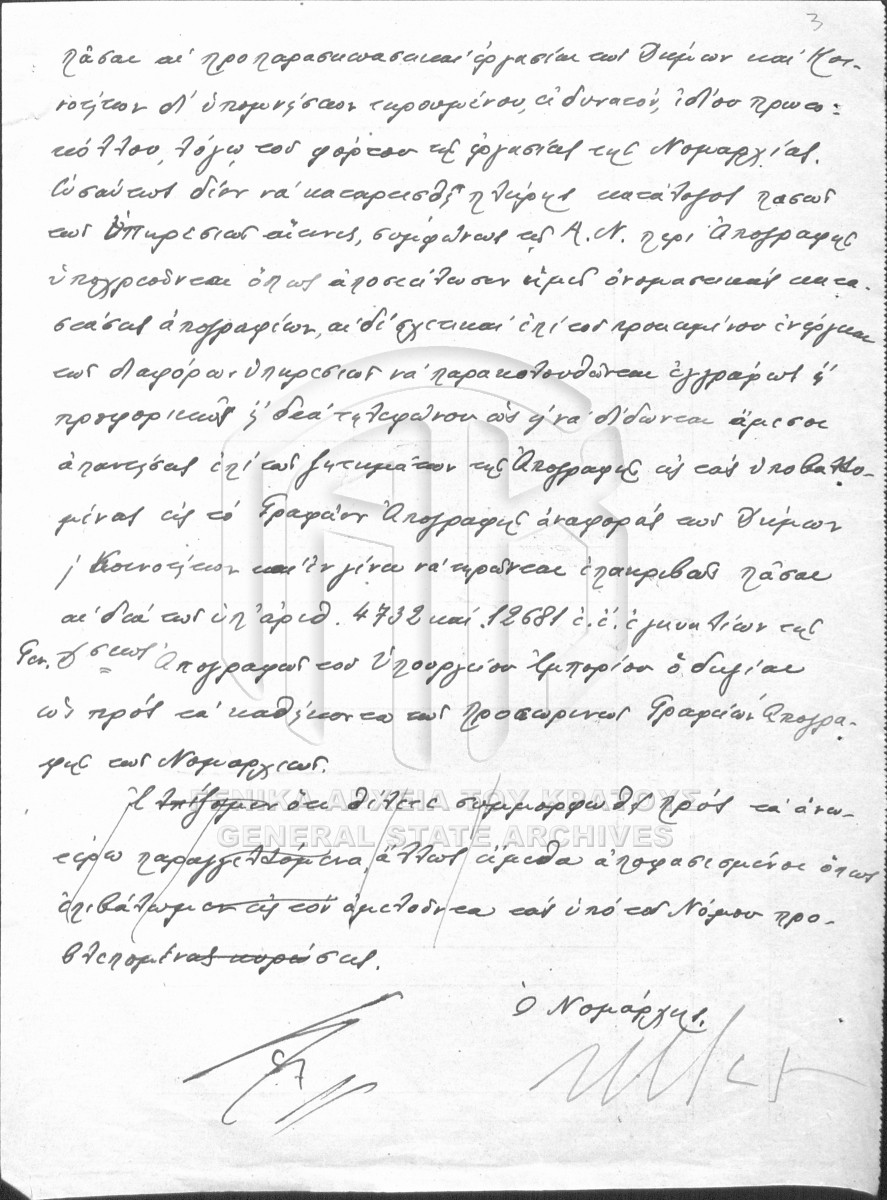 3
πᾶσαι αἱ προπαρασκευαστικαί ἐργασίαι τῶν Δήμων καί Κοι-
νοτήτων δι' ὑπομνήσεων τηρουμένου, εἰ δυνατόν, ἰδίου πρωτο-
κόλλου, λόγω τοῦ φόρτου τῆς ἐργασίας τῆς Νομαρχίας.
Ὡσαύτως δέον νά καταρτισθῆ πλήρης κατάλογος πασῶν
τῶν Ὑπηρεσιῶν αἵτινες, συμφώνως τῷ Α.Ν. περί Ἀπογραφῆς
ὑποχρεοῦνται ὅπως ἀποστείλωσιν ἡμῖν ὀνομαστικάς κατα-
στάσεις ἀπογραφέων, αἱ δέ σχετικαί ἐπί τοῦ προκειμένου ἐνέργειαι
τῶν διαφόρων Ὑπηρεσιῶν νά παρακολουθῶνται ἐγγράφως ἤ
προφορικῶς ἤ διά τηλεφώνου ὡς καί νά δίδωνται ἄμεσοι
ἀπαντήσεις ἐπί τῶν ζητημάτων τῆς Ἀπογραφῆς εἰς τάς ὑποβαλλο-
μένας εἰς τό Γραφεῖον Ἀπογραφῆς ἀναφοράς τῶν Δήμων
ἤ Κοινοτήτων καί ἐν γένει νά τηρῶνται ἐπακριβῶς πᾶσαι
αἱ διά τῶν ὑπ' ἀριθ. 4732 καί 12681 ἐ.ἔ. ἐγκυκλίων τῆς
Γεν. Δ/σεως Ἀπογραφῶν τοῦ Ὑπουργείου Ἐμπορίου ὁδηγίαι
ὡς πρός τά καθήκοντα τῶν προσωρινῶν Γραφείων Ἀπογρα-
φῆς τῶν Νομαρχιῶν.
Ἐλπίζομεν ὅτι θέλετε συμμορφωθῆ πρός τά ἀνω-
τέρω παραγγελλόμενα, ἄλλως εἴμεθα ἀποφασισμένοι ὅπως
ἐπιβάλωμεν εἰς τόν ἀμελοῦντα τάς ὑπό τοῦ Νόμου προ-
βλεπομένας κυρώσεις.
Ὁ Νομάρχης
ΓΕΝΙΚΑ ΑΡΧΕΙΑ ΤΟΥ ΚΡΑΤΟΥΣ
GENERAL STATE ARCHIVES